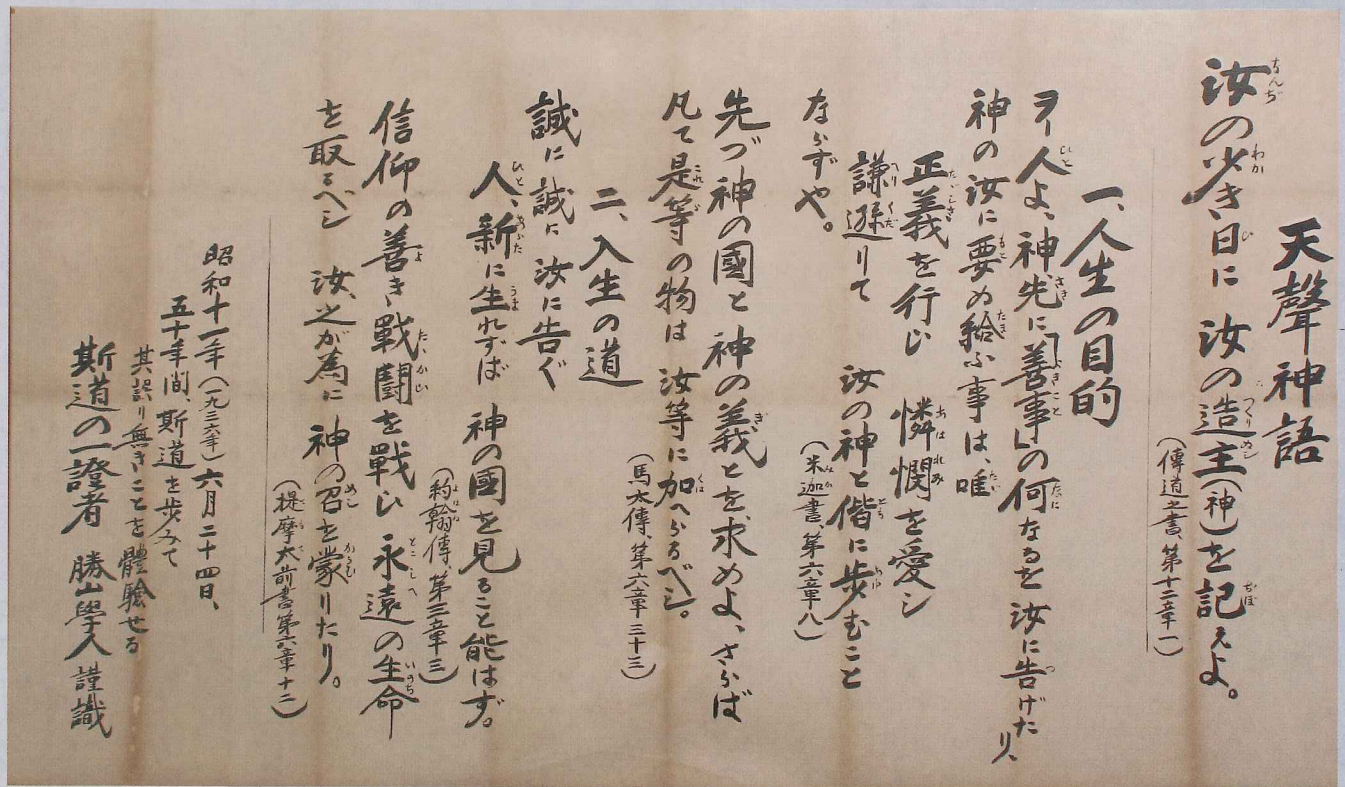 天聲神語
汝の少き日に 汝の造主(神)を記えよ。
(傳道之書、第十二章一)
一、人生の目的
ヲー人よ、神先に「善事」の何なるを 汝に告げたり、
神の汝に要め給ふ事は、唯
正義を行ひ 憐憫を愛シ
謙遜りて 汝の神と偕に歩むこと
ならずや。
(米迦書、第六章八)
先づ神の國と 神の義とを求めよ、さらば
凡て是等の物は 汝等に加へらるべシ。
(馬太傳、第六章三十三)
二、入生の道
誠に誠に 汝に告ぐ
人、新に生れずば 神の國を見ること能はず。
(約翰傳、第三章三)
信仰の善き戰鬪を戰ひ 永遠の生命
を取るべシ 汝、之が為に 神の召を蒙りたり。
(提摩太前書第六章十二)
昭和十一年(一九三六年)六月二十四日、
五十年間、斯道を歩みて
其誤り無きことを體驗せる
斯道の一證者 勝山學人 謹識